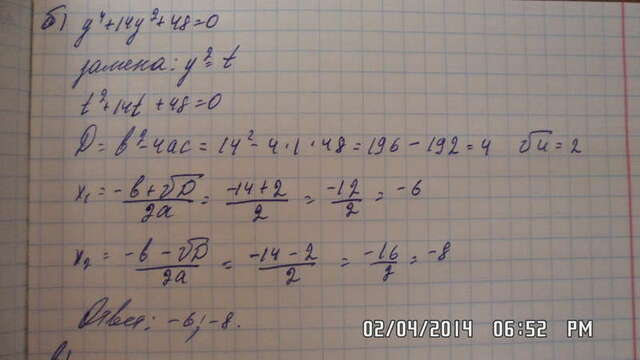 б) y⁴+14y²+48=0
замена: y²=t
t²+14t+48=0
D=b²-4ac=14²-4·1·48=196-192=4 √4=2
x₁=(-b+√D)/2a=(-14+2)/2=-12/2=-6
x₂=(-b-√D)/2a=(-14-2)/2=-16/2=-8
Ответ: -6;-8.
02/04/2014 06:52 PM